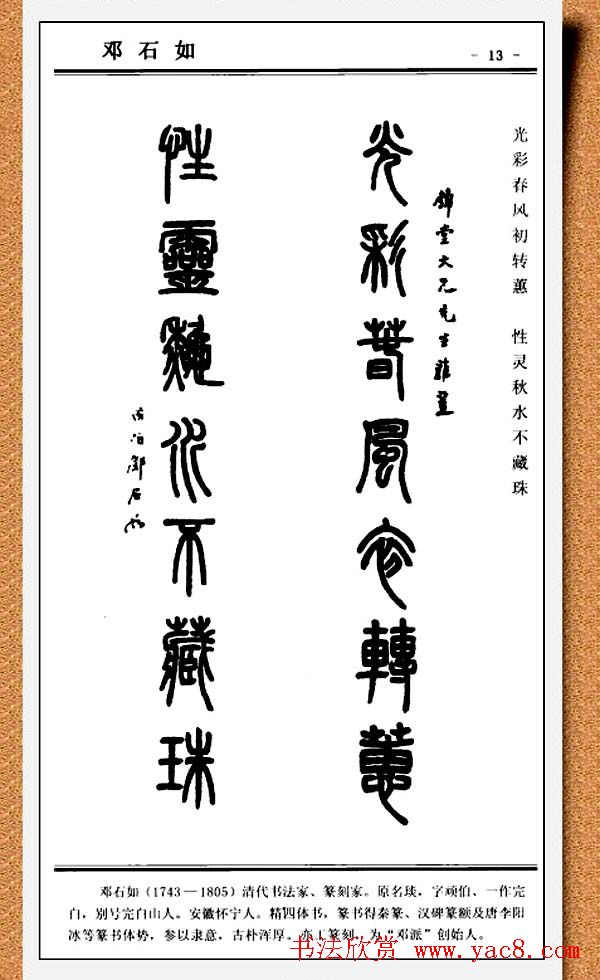 邓石如
- 13 -
光彩春风初转蕙　性灵秋水不藏珠
錦堂大兄先生雅鑒
光彩春風初轉蕙
性靈秋水不藏珠
古浣鄧石如
邓石如（1743—1805）清代书法家、篆刻家。原名琰，字顽伯、一作完
白，别号完白山人。安徽怀宁人。精四体书，篆书得秦篆、汉碑篆额及唐李阳
冰等篆书体势，参以隶意，古朴浑厚。亦工篆刻，为“邓派”创始人。
书法欣赏 www.yac8.com